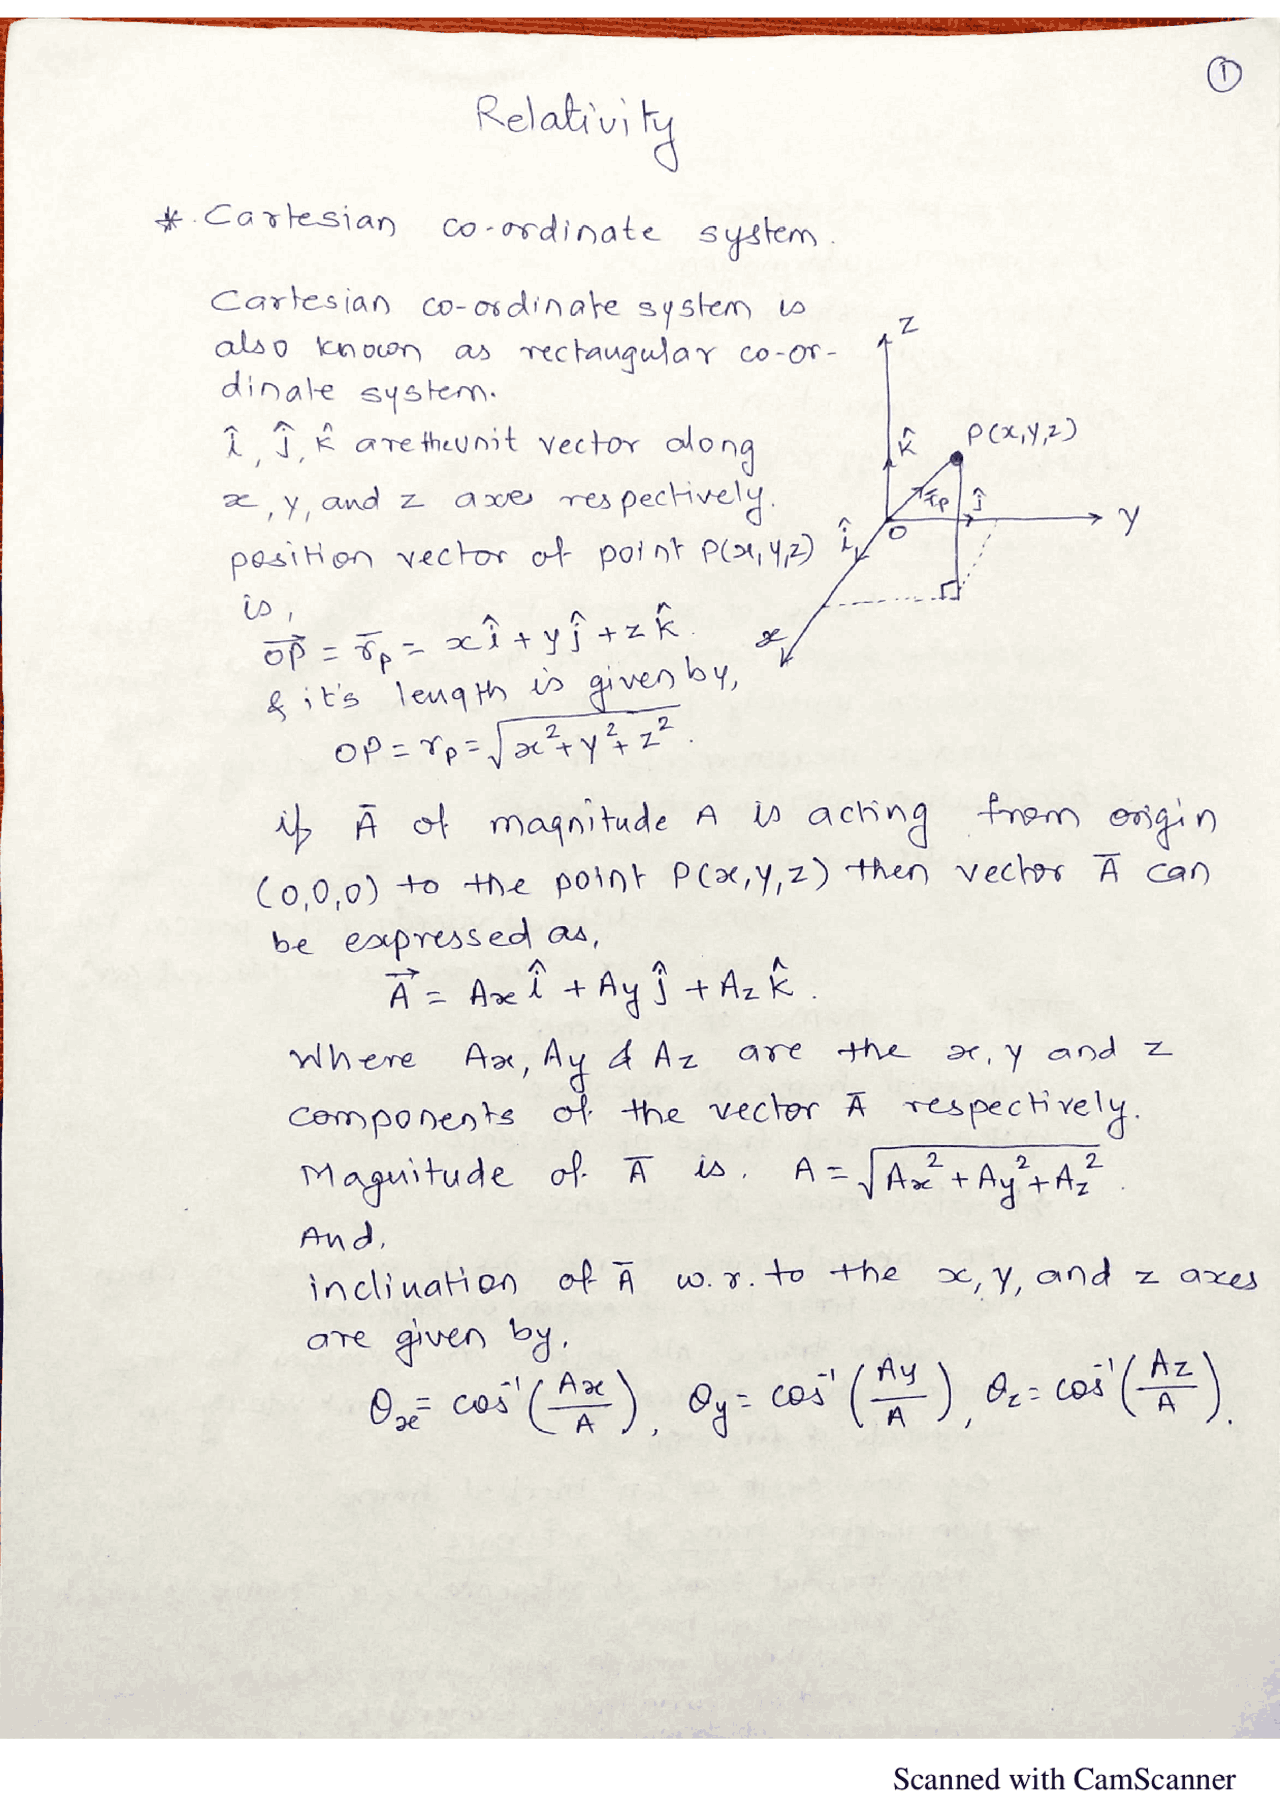 ①
Relativity
* Cartesian co-ordinate system.
Cartesian co-ordinate system is
also known as rectangular co-or-
dinate system.
î, ĵ, k̂ are the unit vector along
x, y, and z axes respectively.
position vector of point P(x,y,z)
is,
z
k̂
P(x,y,z)
r̄p
ĵ
y
O
î
x
→OP = r̄p = xî + yĵ + zk̂.
& it's length is given by,
OP = rp = √(x² + y² + z²).
if Ā of magnitude A is acting from origin
(0,0,0) to the point P(x,y,z) then vector Ā can
be expressed as,
→A = Ax î + Ay ĵ + Az k̂.
Where Ax, Ay & Az are the x, y and z
components of the vector Ā respectively.
Magnitude of Ā is. A = √(Ax² + Ay² + Az²).
And,
inclination of Ā w.r. to the x, y, and z axes
are given by,
θx = cos⁻¹(Ax/A), θy = cos⁻¹(Ay/A), θz = cos⁻¹(Az/A).
Scanned with CamScanner